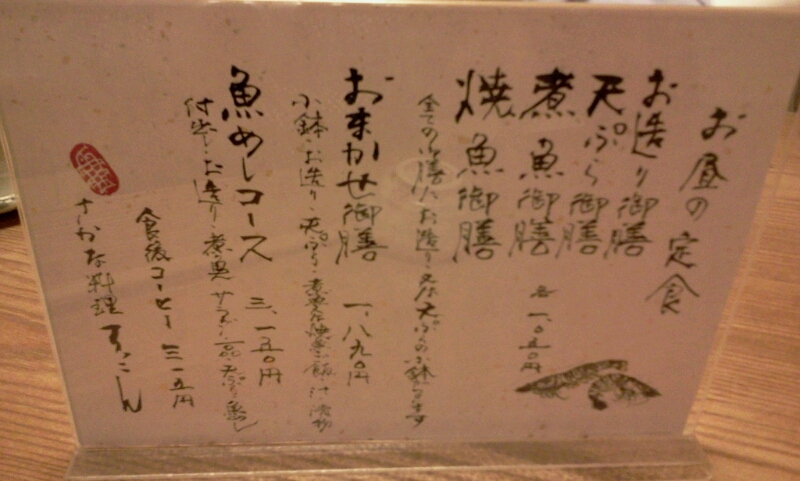 お昼の定食
お造り御膳
天ぷら御膳
煮魚御膳
各 一、〇五〇円
焼魚御膳
全ての御膳にお造り又は天ぷらの小鉢
おまかせ御膳 一、八九〇円
小鉢・お造り・天ぷら・煮魚又は
魚めしコース 三、一五〇円
付出し・お造り・煮魚 サラダ
食後コーヒー 三一五円
さかな料理